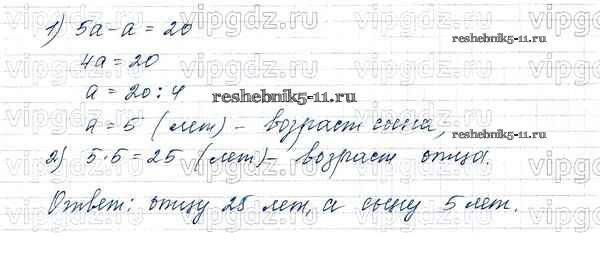 1) 5a-a = 20
4a = 20
a = 20 : 4
a = 5 (лет) - возраст сына,
2) 5·5 = 25 (лет) - возраст отца.
Ответ: отцу 25 лет, а сыну 5 лет.
reshebnik5-11.ru
reshebnik5-11.ru
reshebnik5-11.ru
vipgdz.ru